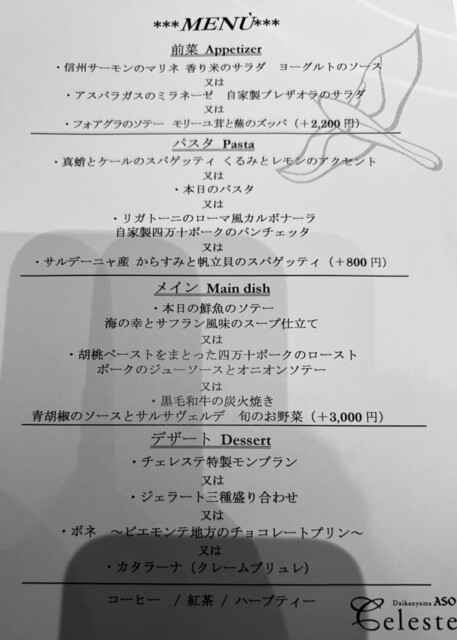 ***MENÙ***
前菜 Appetizer
・信州サーモンのマリネ 香り米のサラダ　ヨーグルトのソース
又は
・アスパラガスのミラネーゼ　自家製ブレザオラのサラダ
又は
・フォアグラのソテー　モリーユ茸と蕪のズッパ（＋2,200円）
パスタ Pasta
・真蛸とケールのスパゲッティ くるみとレモンのアクセント
又は
・本日のパスタ
又は
・リガトーニのローマ風カルボナーラ
自家製四万十ポークのパンチェッタ
又は
・サルデーニャ産 からすみと帆立貝のスパゲッティ（＋800円）
メイン Main dish
・本日の鮮魚のソテー
海の幸とサフラン風味のスープ仕立て
又は
・胡桃ペーストをまとった四万十ポークのロースト
ポークのジューソースとオニオンソテー
又は
・黒毛和牛の炭火焼き
青胡椒のソースとサルサヴェルデ　旬のお野菜（＋3,000円）
デザート Dessert
・チェレステ特製モンブラン
又は
・ジェラート三種盛り合わせ
又は
・ボネ　～ピエモンテ地方のチョコレートプリン～
又は
・カタラーナ（クレームブリュレ）
コーヒー　/ 紅茶 / ハーブティー
Daikanyama ASO
Celeste